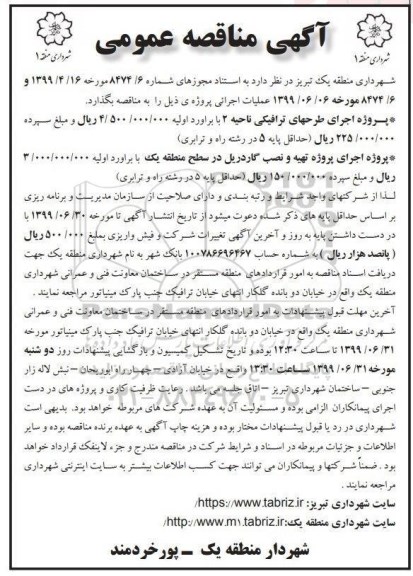 آگهی مناقصه عمومی
شهرداری منطقه ۱
شهرداری منطقه ۱
شهرداری منطقه یک تبریز در نظر دارد به استناد مجوزهای شماره ۸۴۷۴/۶ مورخه ۱۳۹۹/۴/۱۶ و
۸۴۷۴/۶ مورخه ۱۳۹۹/۰۶/۰۶ عملیات اجرائی پروژه ی ذیل را به مناقصه بگذارد.
*پــروژه اجرای طرحهای ترافیکی ناحیه ۲ با برآورد اولیه ۴/۵۰۰/۰۰۰/۰۰۰ ریال و مبلغ سپرده
۲۲۵/۰۰۰/۰۰۰ ریال (حداقل پایه ۵ در رشته راه و ترابری)
*پروژه اجرای پروژه تهیه و نصب گاردریل در سطح منطقه یک با برآورد اولیه ۳/۰۰۰/۰۰۰/۰۰۰
ریال و مبلغ سپرده ۱۵۰/۰۰۰/۰۰۰ ریال (حداقل پایه ۵ در رشته راه و ترابری)
لـذا از شـرکتهای واجد شـرایط و رتبه بندی و دارای صلاحیت از سـازمان مدیریـت و برنامه ریزی
بر اساس حداقل پایه های ذکر شده دعوت میشود از تاریخ انتشـار آگهی تا مورخه ۱۳۹۹/۰۶/۳۰ با
در دست داشتن پایه به روز و آخرین آگهی تغییرات شـرکت و فیش واریزی بمبلغ ۵۰۰/۰۰۰ ریال
( پانصد هزار ریال ) به شماره حساب ۱۰۰۷۸۶۶۹۶۴۶۷ بانک شهر به نام شهرداری منطقه یک جهت
دریافت اسناد مناقصه به امور قراردادهای منطقه مستقر در ساختمان معاونت فنی و عمرانی شهرداری
منطقه یک واقع در خیابان دو بانده گلکار انتهای خیابان ترافیک جنب پارک مینیاتور مراجعه نمایند .
آخرین مهلت قبول پیشنهادات به امور قراردادهای منطقه مستقر در ساختمان معاونت فنی و عمرانی
شهرداری منطقه یک واقع در خیابان دو بانده گلکار انتهای خیابان ترافیک جنب پارک مینیاتور مورخه
۱۳۹۹/۰۶/۳۱ تا ساعت ۱۲:۳۰ بوده و تاریخ تشکیل کمیسیون و بازگشایی پیشنهادات روز دو شنبه
مورخه ۱۳۹۹/۰۶/۳۱ ساعت ۱۳:۳۰ واقع در خیابان آزادی – چهارراه ابوریحان – نبش لاله زار
جنوبی – ساختمان شهرداری تبریز – اتاق جلسه می باشد. رعایت ظرفیت کاری و پروژه های در دست
اجرای پیمانکاران الزامی بوده و مسئولیت آن به عهده شـرکت های مربوطه خواهد بود. بدیهی است
شهرداری در رد یا قبول پیشنهادات مختار بوده و هزینه چاپ آگهی به عهده برنده مناقصه بوده و سایر
اطلاعات و جزئیات مربوطه در اسناد و شرایط شرکت در مناقصه مندرج و جزء لاینفک قرارداد خواهد
بود . ضمناً شرکتها و پیمانکاران می توانند جهت کسب اطلاعات بیشتر به سایت اینترنتی شهرداری
مراجعه نمایند .
سایت شهرداری تبریز: https://www.tabriz.ir/
سایت شهرداری منطقه یک: http://www.m1.tabriz.ir/
شهردار منطقه یک ــ پورخردمند